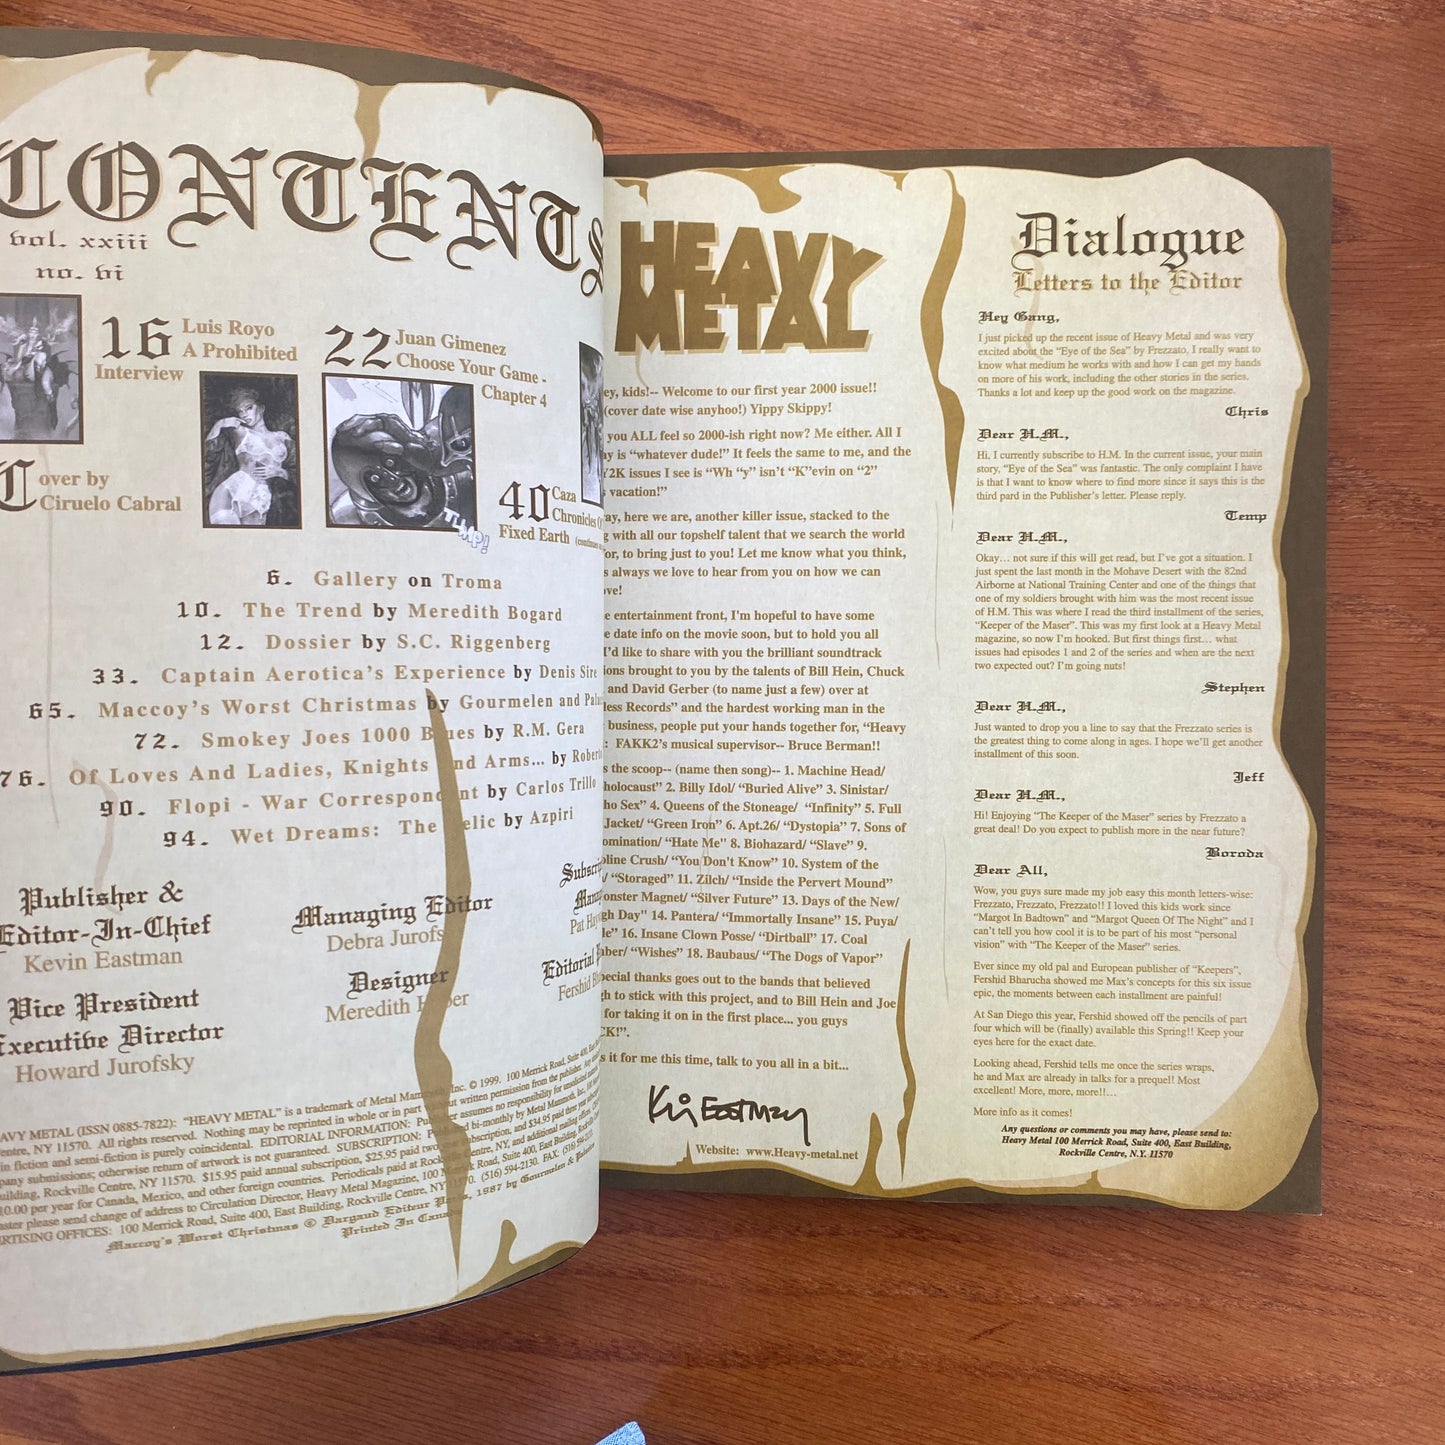 CONTENTS
vol. xxiii
no. vi
16 Luis Royo
A Prohibited
Interview
22 Juan Gimenez
Choose Your Game -
Chapter 4
THMP!
Cover by
Ciruelo Cabral
40 Caza
Chronicles
Fixed Earth
6. Gallery on Troma
10. The Trend by Meredith Bogard
12. Dossier by S.C. Riggenberg
33. Captain Aerotica's Experience by Denis Sire
65. Maccoy's Worst Christmas by Gourmelen and
72. Smokey Joes 1000 Blues by R.M. Gera
76. Of Loves And Ladies, Knights And Arms... by
90. Flopi - War Correspondent by Carlos Trillo
94. Wet Dreams: The Relic by Azpiri
Publisher &
Editor-In-Chief
Kevin Eastman
Vice President
Executive Director
Howard Jurofsky
Managing Editor
Debra Jurofs
Designer
Meredith
Pat
Editorial
Fershid
HEAVY METAL (ISSN 0885-7822): "HEAVY METAL" is a trademark of Metal Mammoth, Inc. © 1999. 100 Merrick Road, Suite 400, East
Centre, NY 11570. All rights reserved. Nothing may be reprinted in whole or in part without written permission from the publisher.
in fiction and semi-fiction is purely coincidental. EDITORIAL INFORMATION: Publisher assumes no responsibility for unsolicited
submissions; otherwise return of artwork is not guaranteed. SUBSCRIPTION: Published bi-monthly by Metal Mammoth, Inc.
Building, Rockville Centre, NY 11570. $15.95 paid annual subscription, $25.95 paid two subscription, and $34.95 paid three
per year for Canada, Mexico, and other foreign countries. Periodicals paid at Rockville Centre, NY, and additional mailing offices.
please send change of address to Circulation Director, Heavy Metal Magazine, 100 Merrick Road, Suite 400, East Building,
ADVERTISING OFFICES: 100 Merrick Road, Suite 400, East Building, Rockville Centre, NY 11570. (516) 594-2130. FAX:
Maccoy's Worst Christmas © Dargaud Editeur Paris, 1987 by Gourmelen &
Printed In Canada
HEAVY
METAL
ey, kids!-- Welcome to our first year 2000 issue!!
(cover date wise anyhoo!) Yippy Skippy!
you ALL feel so 2000-ish right now? Me either. All I
ay is “whatever dude!” It feels the same to me, and the
Y2K issues I see is “Wh “y” isn’t “K”evin on “2”
vacation!”
ay, here we are, another killer issue, stacked to the
g with all our topshelf talent that we search the world
or, to bring just to you! Let me know what you think,
s always we love to hear from you on how we can
ve!
e entertainment front, I'm hopeful to have some
e date info on the movie soon, but to hold you all
I'd like to share with you the brilliant soundtrack
ions brought to you by the talents of Bill Hein, Chuck
and David Gerber (to name just a few) over at
less Records” and the hardest working man in the
business, people put your hands together for, “Heavy
: FAKK2’s musical supervisor-- Bruce Berman!!
s the scoop-- (name then song)-- 1. Machine Head/
holocaust” 2. Billy Idol/ “Buried Alive” 3. Sinistar/
ho Sex” 4. Queens of the Stoneage/ “Infinity” 5. Full
Jacket/ “Green Iron” 6. Apt.26/ “Dystopia” 7. Sons of
omination/ “Hate Me” 8. Biohazard/ “Slave” 9.
line Crush/ “You Don't Know” 10. System of the
/ “Storaged” 11. Zilch/ “Inside the Pervert Mound”
onster Magnet/ “Silver Future” 13. Days of the New/
gh Day" 14. Pantera/ “Immortally Insane” 15. Puya/
le” 16. Insane Clown Posse/ “Dirtball” 17. Coal
ber/ “Wishes” 18. Baubaus/ “The Dogs of Vapor”
pecial thanks goes out to the bands that believed
gh to stick with this project, and to Bill Hein and Joe
for taking it on in the first place... you guys
CK!”.
s it for me this time, talk to you all in a bit...
Kevin Eastman
Website: www.Heavy-metal.net
Dialogue
Letters to the Editor
Hey Gang,
I just picked up the recent issue of Heavy Metal and was very
excited about the “Eye of the Sea” by Frezzato, I really want to
know what medium he works with and how I can get my hands
on more of his work, including the other stories in the series.
Thanks a lot and keep up the good work on the magazine.
Chris
Dear H.M.,
Hi, I currently subscribe to H.M. In the current issue, your main
story, “Eye of the Sea” was fantastic. The only complaint I have
is that I want to know where to find more since it says this is the
third pard in the Publisher's letter. Please reply.
Temp
Dear H.M.,
Okay… not sure if this will get read, but I’ve got a situation. I
just spent the last month in the Mohave Desert with the 82nd
Airborne at National Training Center and one of the things that
one of my soldiers brought with him was the most recent issue
of H.M. This was where I read the third installment of the series,
“Keeper of the Maser”. This was my first look at a Heavy Metal
magazine, so now I’m hooked. But first things first… what
issues had episodes 1 and 2 of the series and when are the next
two expected out? I’m going nuts!
Stephen
Dear H.M.,
Just wanted to drop you a line to say that the Frezzato series is
the greatest thing to come along in ages. I hope we’ll get another
installment of this soon.
Jeff
Dear H.M.,
Hi! Enjoying “The Keeper of the Maser” series by Frezzato a
great deal! Do you expect to publish more in the near future?
Boroda
Dear All,
Wow, you guys sure made my job easy this month letters-wise:
Frezzato, Frezzato, Frezzato!! I loved this kids work since
“Margot In Badtown” and “Margot Queen Of The Night” and I
can’t tell you how cool it is to be part of his most “personal
vision” with “The Keeper of the Maser” series.
Ever since my old pal and European publisher of “Keepers”,
Fershid Bharucha showed me Max’s concepts for this six issue
epic, the moments between each installment are painful!
At San Diego this year, Fershid showed off the pencils of part
four which will be (finally) available this Spring!! Keep your
eyes here for the exact date.
Looking ahead, Fershid tells me once the series wraps,
he and Max are already in talks for a prequel! Most
excellent! More, more, more!!…
More info as it comes!
Any questions or comments you may have, please send to:
Heavy Metal 100 Merrick Road, Suite 400, East Building,
Rockville Centre, N.Y. 11570